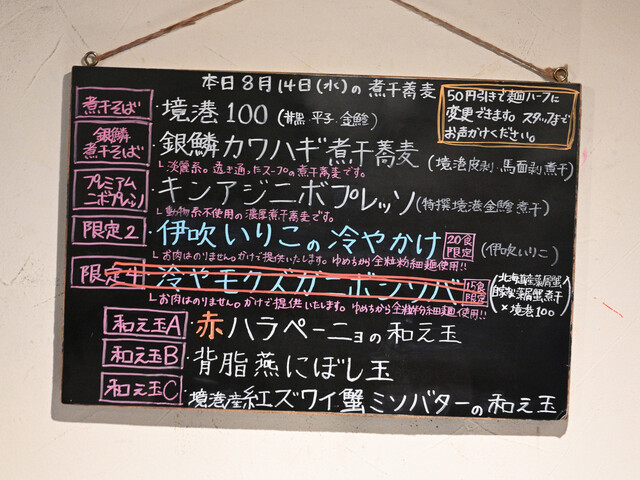 本日8月14日(水)の煮干蕎麦
50円引きで麺ハーフに
変更できます。スタッフまで
お声がけください。
煮干そば ・境港100 (平子・金鯵)
銀鱗煮干そば ・銀鱗カワハギ煮干蕎麦 (境港皮剥・馬面剥煮干)
└淡麗系。透き通ったスープの煮干蕎麦です。
プレミアムニボプレッソ ・キンアジニボプレッソ (特撰境港金鯵煮干)
└動物系不使用の濃厚煮干蕎麦です。
限定2 ・伊吹いりこの冷やかけ 20食限定 (伊吹いりこ)
└お肉はのりません。かけで提供いたします。ゆめちから全粒粉細麺使用!!
限定4 冷やモクズガニボシソバ 15食限定 (北海道産藻屑蟹 自家製藻屑蟹煮干 ×境港100)
└お肉はのりません。かけで提供いたします。ゆめちから全粒粉細麺使用!!
和え玉A ・赤ハラペーニョの和え玉
和え玉B ・背脂燕にぼし玉
和え玉C ・境港産紅ズワイ蟹ミソバターの和え玉